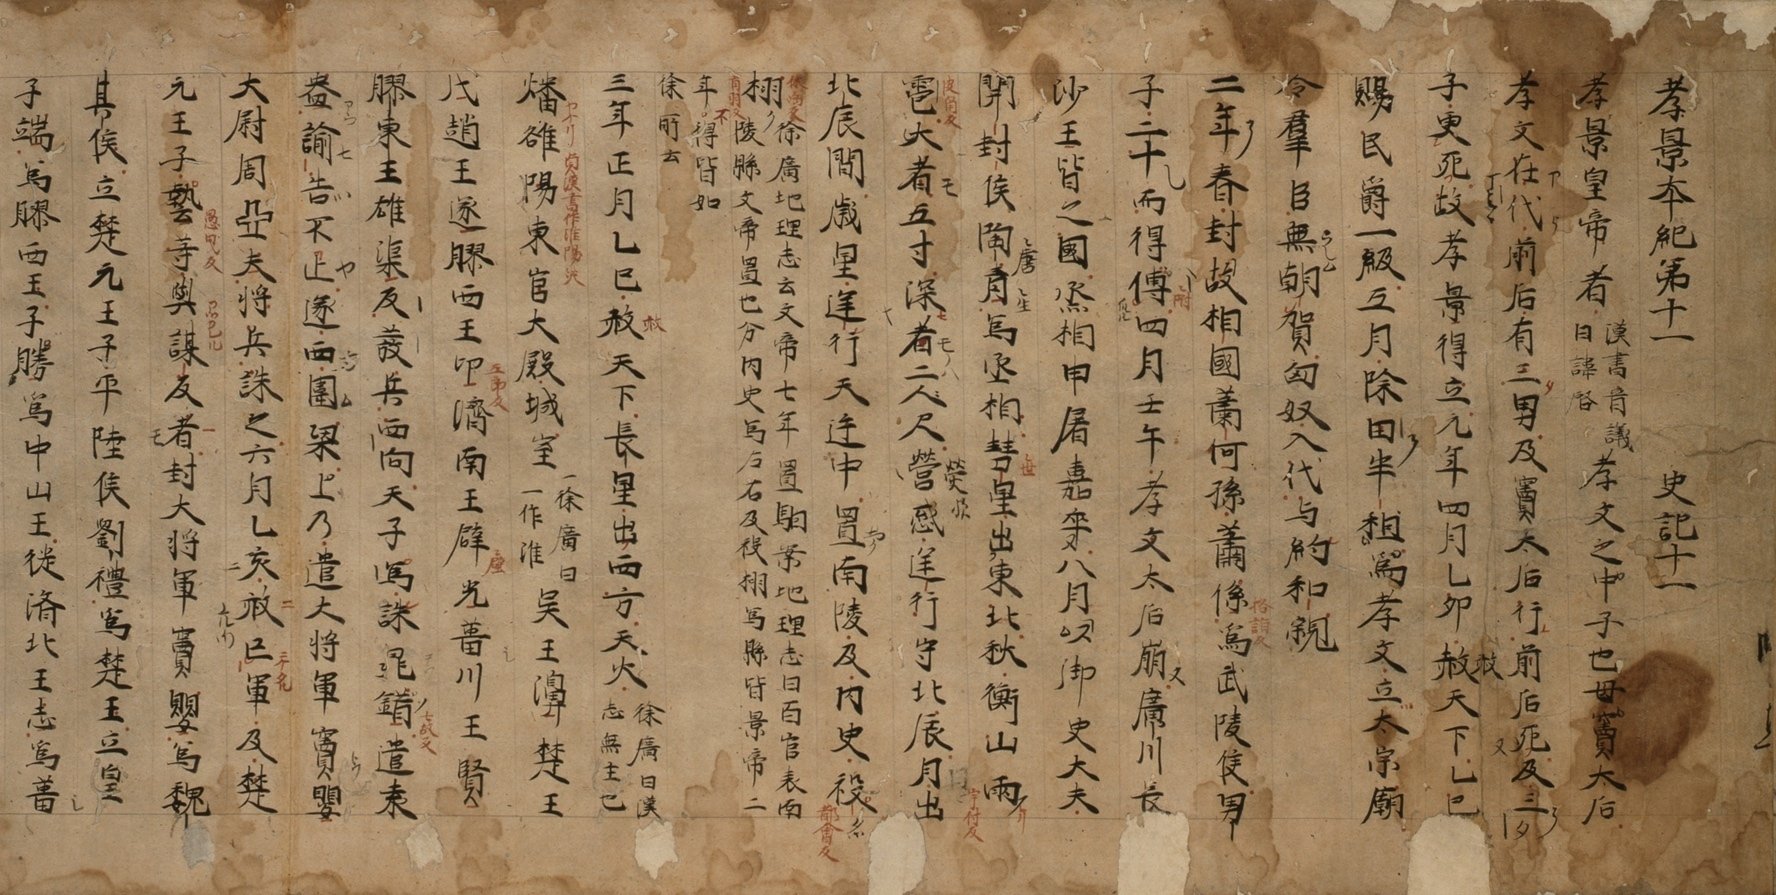 孝景本紀第十一 史記十一
孝景皇帝者 漢書音議 曰諱啓 孝文之中子也母竇太后
孝文在代前后有三男及竇太后行前后死及三
子更死故孝景得立元年四月乙卯赦天下乙巳
賜民爵一級五月除田半租爲孝文立太宗廟
令羣臣無朝賀匈奴入代与約和親
二年春封故相國蕭何孫蕭係爲武陵侯男
子二十而得傅四月壬午孝文太后崩廣川長
沙王皆之國丞相申屠嘉卒八月以御史大夫
開封侯陶青爲丞相彗星出東北秋衡山雨
雹大者五寸深者二尺營惑逆行守北辰月出
北辰間歲星逆行天廷中置南陵及内史祋
栩 徐廣地理志云文帝七年置駰案地理志曰百官表南
陵縣文帝置也分内史爲左右及祋栩爲縣皆景帝二
年不得皆如
徐所云
三年正月乙巳赦天下長星出西方天火 徐廣曰漢 志無主已
燔雒陽東宮大殿城室 徐廣曰 一作淮 吳王濞楚王
戊趙王遂膠西王卬濟南王辟光菑川王賢
膠東王雄渠反發兵西向天子爲誅晁錯遣袁
盎諭告不止遂西圍梁上乃遣大將軍竇嬰
大尉周亞夫將兵誅之六月乙亥赦亡軍及楚
元王子蓺等與謀反者封大將軍竇嬰爲魏
其侯立楚元王子平陸侯劉禮爲楚王立皇
子端爲膠西王子勝爲中山王徙濟北王志爲菑